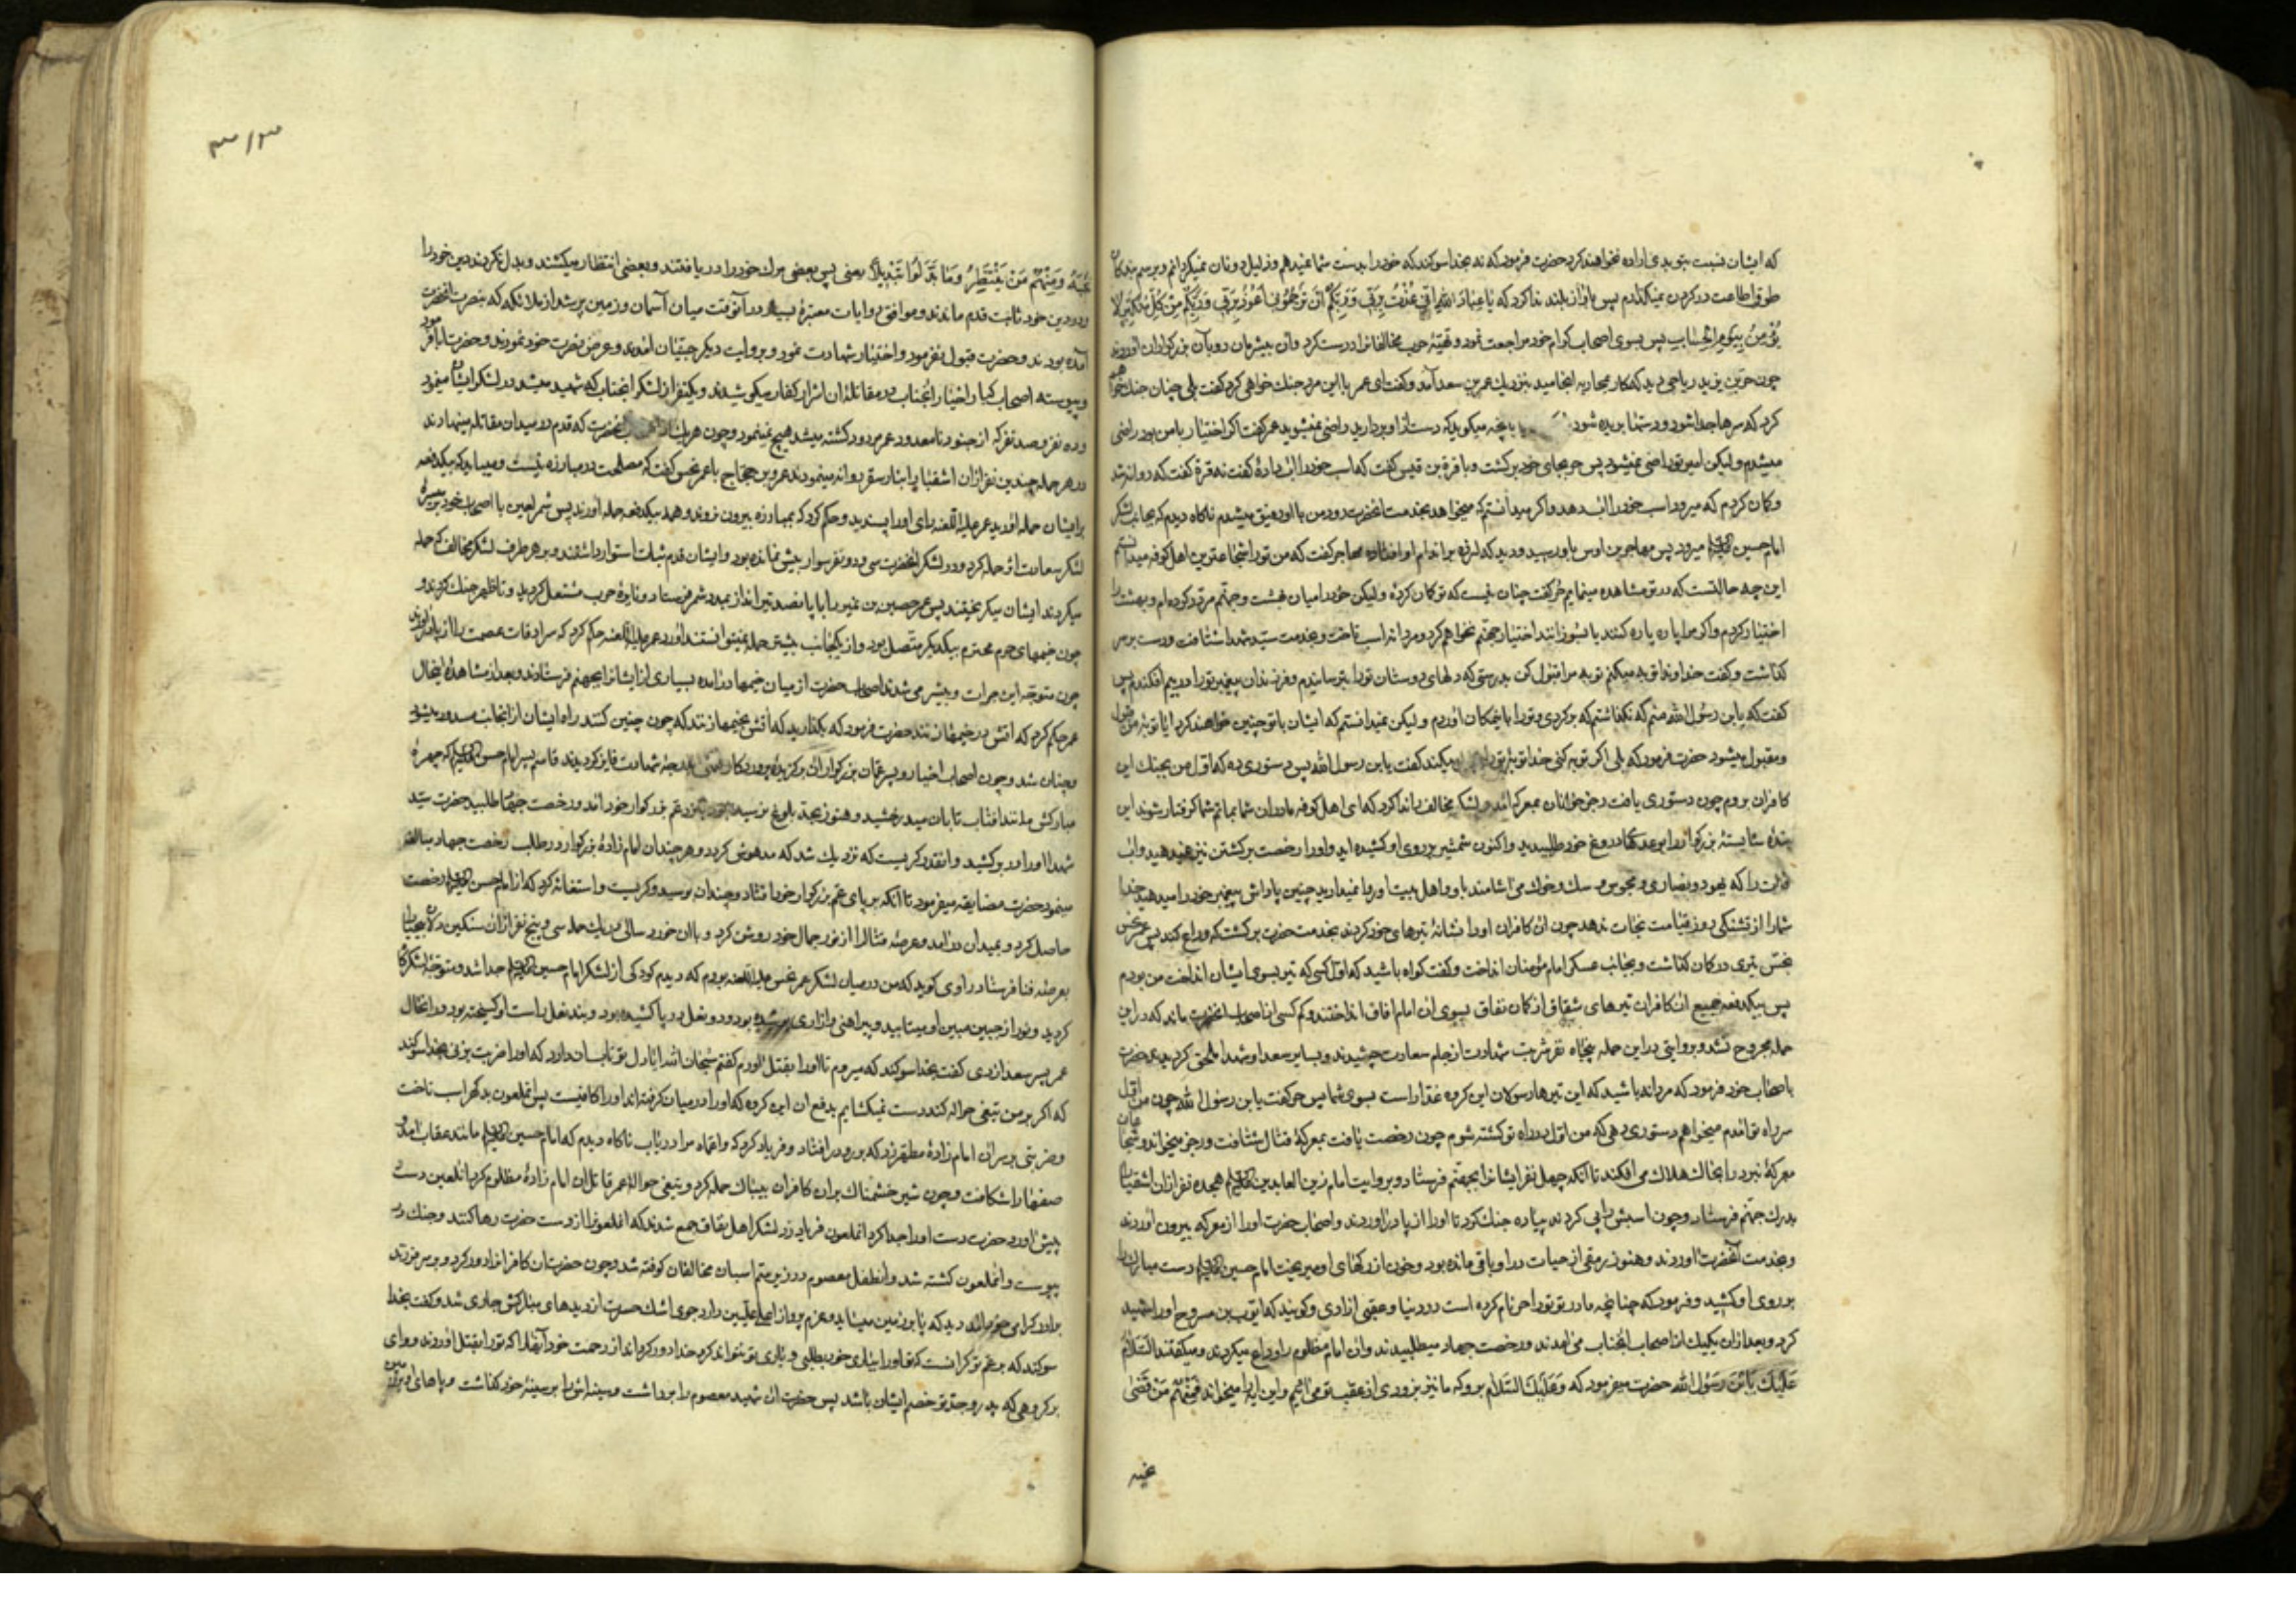 که ایشان نسبت بتو بدی اراده نخواهند کرد حضرت فرمود که نه بخدا سوکند که خود را بدست شما نمیدهم و ذلیل دونان نمیکردانم و برسم بندکان
طوق اطاعت در کردن نمیکذارم پس باواز بلند ندا کرد که یا عِبادَ اللهِ اِنّی عُذْتُ بِرَبّی وَرَبِّکُمْ اَنْ تَرْجُمُونِ اَعُوذُ بِرَبّی وَرَبِّکُمْ مِنْ کُلِّ مُتَکَبِّرٍ لا
یُؤْمِنُ بِیَوْمِ الْحِسابِ پس بسوی اصحاب کرام خود مراجعت نمود و تهیّهٔ حرب مخالفانرا درست کرد وان بیشرمان رو بآن بزرکواران اوردند
چون حرّ بن یزید ریاحی دید که کار بمحاربه انجامید بنزدیک عمر بن سعد آمد و کفت ای عمر با این مرد جنک خواهی کرد کفت بلی چنان جنک خواهم
کرد که سرها جدا شود و دستها بریده شود بانچه میکوید که دست از او بردارید راضی نمیشوید عمر کفت اکر اختیار با من بود راضی
میشدم و لیکن امیر تو راضی نمیشود پس حر بجای خود برکشت و با قرة بن قیس کفت که اسب خود را اب دادهٔ کفت نه قرة کفت که روانه شد
و کمان کردم که میرود اسب خود را اب دهد و اکر میدانستم که میخواهد بخدمت انحضرت رود من با او رفیق میشدم ناکاه دیدم که بجانب لشکر
امام حسین میرود پس مهاجر بن اوس باو رسید و دید که لرزه بر اندام او افتاده مهاجر کفت که من تو را شجاعترین اهل کوفه میدانستم
این چه حالتست که در تو مشاهده مینمایم حُر کفت چنان نیست که تو کمان کردهٔ و لیکن خود را میان بهشت و جهنّم مردّد کرده‌ام و بهشت را
اختیار کردم و اکر مرا پاره پاره کنند یا بسوزانند اختیار جهنّم نخواهم کرد و مردانه اسب تاخت و بخدمت سیّد شهدا شتافت و دست بر سر
کذاشت و کفت خداوندا توبه میکنم توبه مرا قبول کن بدرستی که دلهای دوستان تو را بترسانیدم و فرزندان پیغمبر تو را در بیم افکندم پس
کفت که یابن رسول الله منم که نکذاشتم که برکردی و تو را باینمکان اوردم و لیکن نمیدانستم که ایشان با تو چنین خواهند کرد ایا توبهٔ من قبول
و مقبول میشود حضرت فرمود که بلی اکر توبه کنی خدا توبهٔ تورا میکند کفت یابن رسول الله پس دستوری ده که اول من بجنک این
کافران بروم چون دستوری یافت رجز خوانان بمعرکه امد و لشکر مخالف را ندا کرد که ای اهل کوفه مادران شما بماتم شما کرفتار شوند این
بندهٔ شایستهٔ بزرکوار را بوعدهای دروغ خود طلبیدید و اکنون شمشیر بر روی او کشیده اید و او را رخصت برکشتن نیز نمیدهید و اب
فرات را که یهود و نصاری و مجوس و سک و خوک می‌اشامند باو و اهل بیت او روا نمیدارید چنین پاداش پیغمبر خود را میدهید خدا
شما را از تشنکی روز قیامت نجات ندهد چون ان کافران او را نشانهٔ تیرهای خود کردند بخدمت حضرت برکشت که وداع کند پس عمر نحس
نجس تیری در کمان کذاشت و بجانب عسکر امام مؤمنان انداخت و کفت کواه باشید که اول کسی که تیر بسوی ایشان انداخت من بودم
پس بیکدفعه جمیع ان کافران تیرهای شقاق از کمان نفاق بسوی ان امام افاق انداختند و کم کسی از اصحاب انحضرت ماند که در این
حمله مجروح نشد و بروایتی در این حمله پنجاه نفر شربت شهادت از جام سعادت چشیدند و بسایر سعدا و شهدا ملحق کردیدند حضرت
باصحاب خود فرمود که مردانه باشید که این تیرها رسولان این کروه غدّار است بسوی شما پس حر کفت یابن رسول الله چون من اوّل
سر راه تو امدم میخواهم دستوری دهی که من اوّل در راه تو کشته شوم چون رخصت یافت بمعرکهٔ قتال شتافت و رجز میخواند و شجاعان
معرکهٔ نبرد را بخاک هلاک می‌افکند تا آنکه چهل نفر ایشانرا بجهنّم فرستاد و بروایت امام زین العابدین هیجده نفر از ان اشقیا را
بدرک جهنّم فرستاد و چون اسبش را پی کردند پیاده جنک کرد تا او را از پا در اوردند و اصحاب حضرت او را از معرکه بیرون اوردند
و بخدمت آنحضرت اوردند و هنوز رمقی از حیات در او باقی مانده بود و خون از رکهای او میریخت امام حسین دست مبارک را
بر روی او کشید و فرمود که چنانچه مادر تو تو را حر نام کرده است در دنیا و عقبی ازادی و کویند که ایّوب بن مسروح او را شهید
کرد و بعد ازان یکیک از اصحاب انجناب می‌امدند و رخصت جهاد میطلبیدند و ان امام مظلوم را وداع میکردند و میکفتند السَّلامُ
عَلَیْکَ یَا ابْنَ رَسُولِ اللهِ حضرت میفرمود که وَعَلَیْکَ السَّلام برو که ما نیز بزودی از عقب تو می‌ائیم و این ایه را میخواند فَمِنْهُمْ مَنْ قَضی
نحبه
۳۱۳
نَحْبَهُ وَمِنْهُمْ مَنْ یَنْتَظِرُ وَما بَدَّلُوا تَبْدیلاً یعنی پس بعضی مرک خود را دریافتند و بعضی انتظار میکشند و بدل نکردند دین خود را
و در دین خود ثابت قدم ماندند و موافق روایات معتبرهٔ بسیار در آنوقت میان آسمان و زمین پر شد از ملائکه که بنصرت انحضرت
آمده بودند و حضرت قبول نفرمود و اختیار شهادت نمود و بروایت دیکر جنّیان امدند و عرض نصرت خود نمودند و حضرت ابا فرمود
و پیوسته اصحاب کبار و اخیار انجناب در مقاتلهٔ ان اشرار کفار میکوشیدند و یکنفر از لشکر انجناب که شهید میشد در لشکر ایشان مینمود
و ده نفر و صد نفر که از جنود نامعدود عمر مردود کشته میشد هیچ نمینمود و چون هر یک از انحضرت که قدم در میدان مقاتله مینهادند
در هر حمله چندین نفر ازان اشقیا را بنار سقر روانه مینمودند عمرو بن حجاج با عمر نحس کفت که مصلحت در مبارزه نیست و میباید که بیکدفعه
بر ایشان حمله اورید عمر علیه اللعنه رای او را پسندید و حکم کرد که بمبارزه بیرون نروند و همه بیکدفعه حمله اورند پس شمر لعین با اصحاب خود بر میسرهٔ
لشکر سعادت اثر حمله کرد و در لشکر انحضرت سی و دو نفر سوار بیش نمانده بود و ایشان قدم ثبات استوار داشتند و بر هر طرف لشکر مخالف که حمله
میکردند ایشان میکریختند پس عمر حصین بن نمیر را با پانصد تیرانداز بمدد شمر فرستاد و نایرهٔ حرب مشتعل کردید و تا ظهر جنک کردند و
چون خیمهای حرم محترم بیکدیکر متصل بود و از یکجانب بیشتر حمله نمیتوانستند اورد عمر علیه اللعنه حکم کرد که سرادقات عصمت را از پا در اورند
چون متوجّه این جرات و بیشرمی شدند اصحاب حضرت از میان خیمها در امده بسیاری از ایشانرا بجهنم فرستادند و بعد از مشاهدهٔ اینحال
عمر حکم کرد که اتش در خیمها زنند حضرت فرمود که بکذارید که اتش بخیمها زنند که چون چنین کنند راه ایشان از اینجانب مسدود میشود
و چنان شد و چون اصحاب اخیار و پسر عمّان بزرکوار ان برکزیدهٔ پروردکار بدرجهٔ شهادت فایز کردیدند قاسم پسر امام حسن که چهرهٔ
مبارکش مانند افتاب تابان میدرخشید و هنوز بحدّ بلوغ نرسیده بود بنزد عم بزرکوار خود امد و رخصت جهاد طلبید حضرت سیّد
شهدا او را در بر کشید و انقدر کریست که نزدیک شد که مدهوش کردد و هر چندان امام زادهٔ بزرکوار در طلب رخصت جهاد مبالغه
مینمود حضرت مضایقه میفرمود تا آنکه بر پای عمّ بزرکوار خود افتاد و چندان بوسید و کریست و استغاثه کرد که از امام حسین رخصت
حاصل کرد و بمیدان در امد و عرصه قتال را از نور جمال خود روشن کرد و با ان خورد سالی در یک حمله سی و پنج نفر ازان سنکین دلان بیحیا را
بعرصه فنا فرستاد راوی کوید که من در میان لشکر عمر نحس علیه اللعنه بودم که دیدم کودکی از لشکر امام حسین جدا شد و متوجّه لشکر ما
کردید و نور از جبین مبین او میتابید و پیراهنی و ازاری پوشیده بود و دو نعل در پا کشیده بود و بند نعل راست او کسیخته بود در اینحال
عمر پسر سعد ازدی کفت بخدا سوکند که میروم تا او را بقتل اورم کفتم سُبحان الله ایا دل تو تاب ان دارد که او را ضربت بزنی بخدا سوکند
که اکر بر من تیغی حواله کند دست نمیکشایم بدفع ان این کروه که او را در میان کرفته‌اند او را کافیست پس انملعون بدکهر اسب تاخت
و ضربتی بر سر ان امام زادهٔ مطهّر زد که برو در افتاد و فریاد کرد که واعمّاه مرا دریاب ناکاه دیدم که امام حسین مانند عقاب امد و
صفها را شکافت و چون شیر خشمناک بر ان کافران بیباک حمله کرد و تیغی حوالهٔ عمر قاتل ان امام زادهٔ مظلوم کرد انلعین دست
پیش اورد حضرت دست او را جدا کرد انملعون فریاد زد لشکر اهل نفاق جمع شدند که انملعونرا از دست حضرت رها کنند و جنک در
پیوست و انملعون کشته شد و انطفل معصوم در زیر سم اسبان مخالفان کوفته شد و چون حضرت ان کافرانرا دور کرد و بر سر فرزند
برادر کرامی خود امد دید که پا بر زمین میساید و عزم پرواز اعلا علیین دارد جوی اشک حسرت از دیدهای مبارکش جاری شد و کفت بخدا
سوکند که بر عم تو کرانست که تو او را بیاری خود بطلبی و یاری تو نتواند کرد خدا دور کرداند از رحمت خود آنها را که تو را بقتل اوردند و وای
بر کروهی که پدر و جدّ تو خصم ایشان باشد پس حضرت ان شهید معصوم را برداشت و سینه‌اش را بر سینهٔ خود کذاشت و پاهای او بر زمین